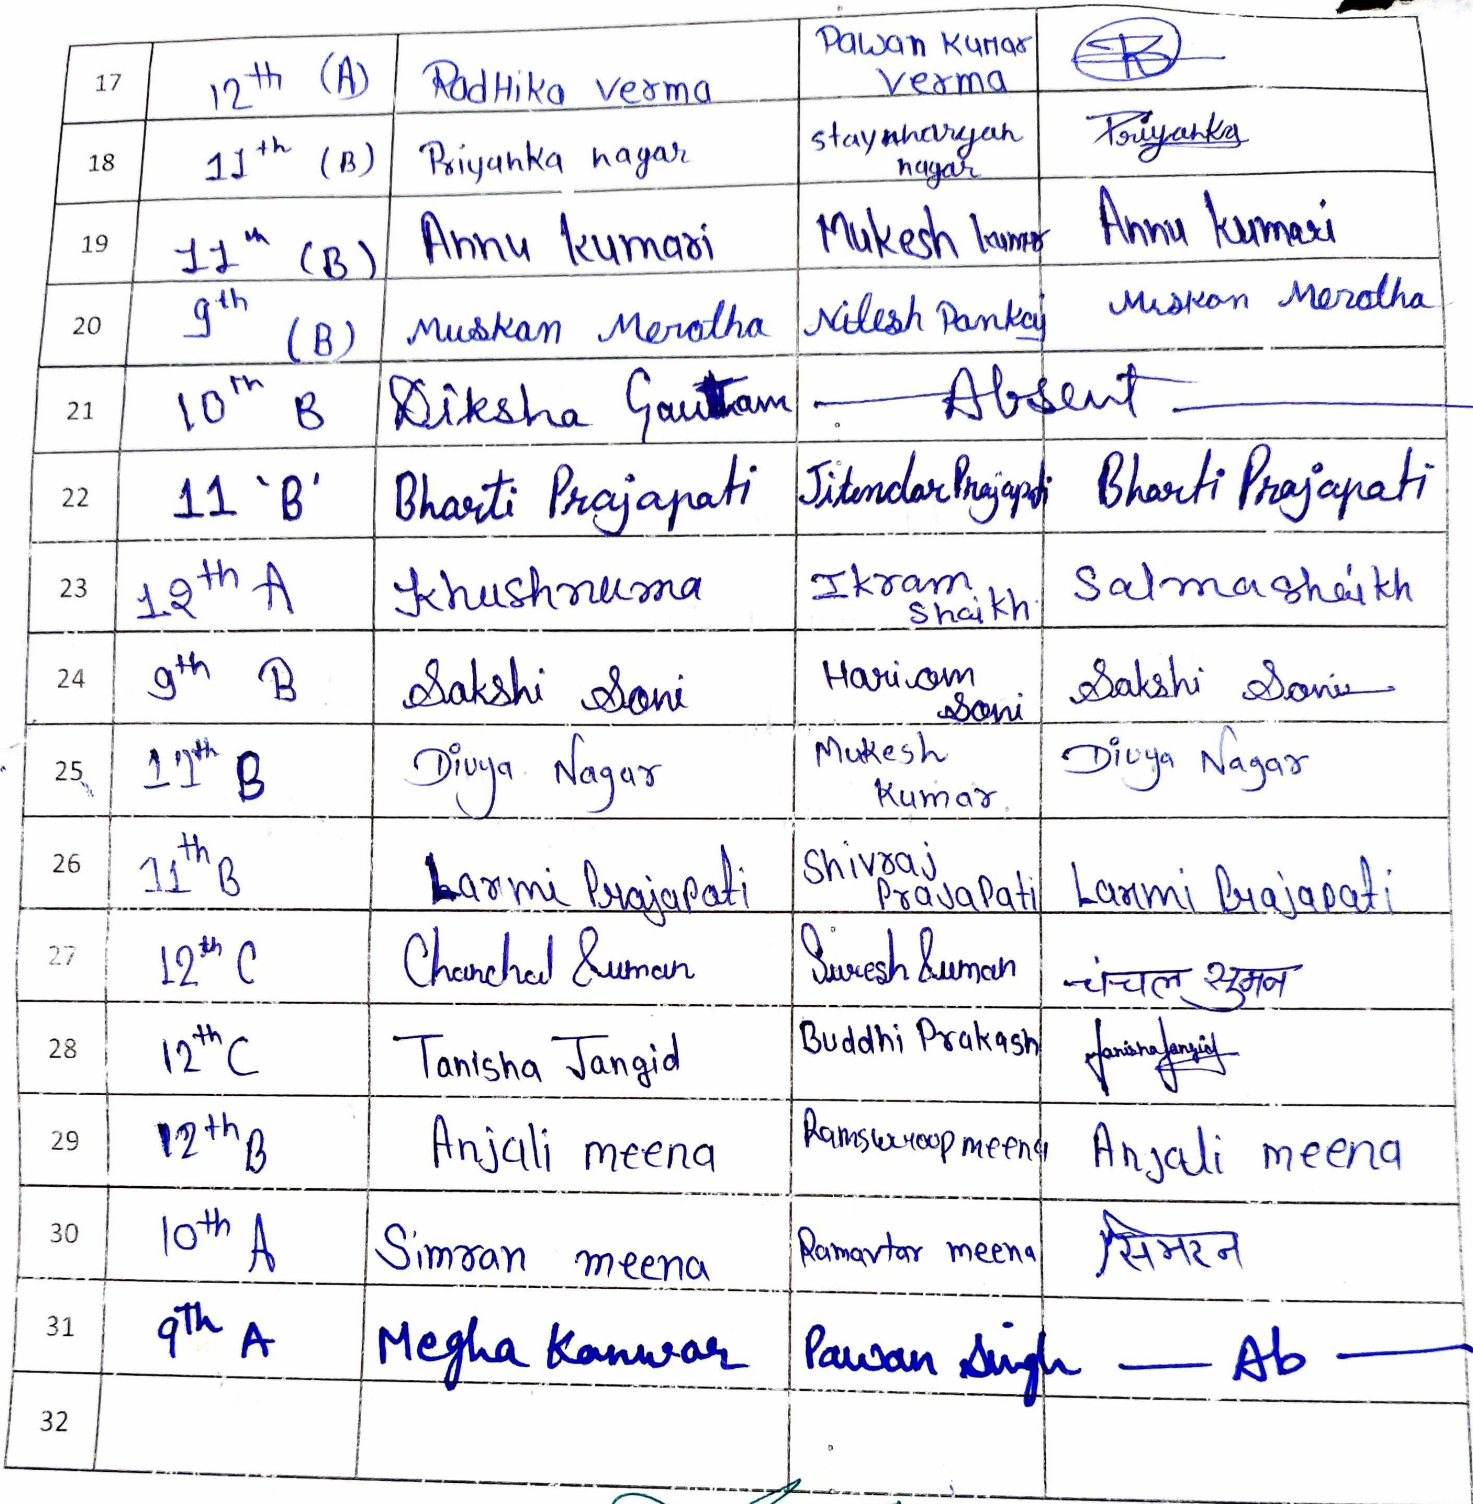 17 12th (A) RadHika verma Pawan Kumar verma
18 11th (B) Priyanka nagar staynharyan nagar Priyanka
19 11th (B) Annu kumari Mukesh kumar Annu kumari
20 9th (B) Muskan Merotha Nilesh Pankaj Muskan Merotha
21 10th B Diksha Gautam — Absent —
22 11 'B' Bharti Prajapati Jitendar Prajapati Bharti Prajapati
23 12th A Khushnuma Ikram Shaikh Salmasheikh
24 9th B Sakshi Soni Hariom Soni Sakshi Soni
25 11th B Divya Nagar Mukesh Kumar Divya Nagar
26 11th B Laxmi Prajapati Shivraj PraJaPati Laxmi Prajapati
27 12th C Chanchal Suman Suresh Suman चंचल सुमन
28 12th C Tanisha Jangid Buddhi Prakash Tanisha Jangid
29 12th B Anjali meena Ramswroop meena Anjali meena
30 10th A Simran meena Ramavtar meena सिमरन
31 9th A Megha Kanwar Pawan Singh — Ab —
32